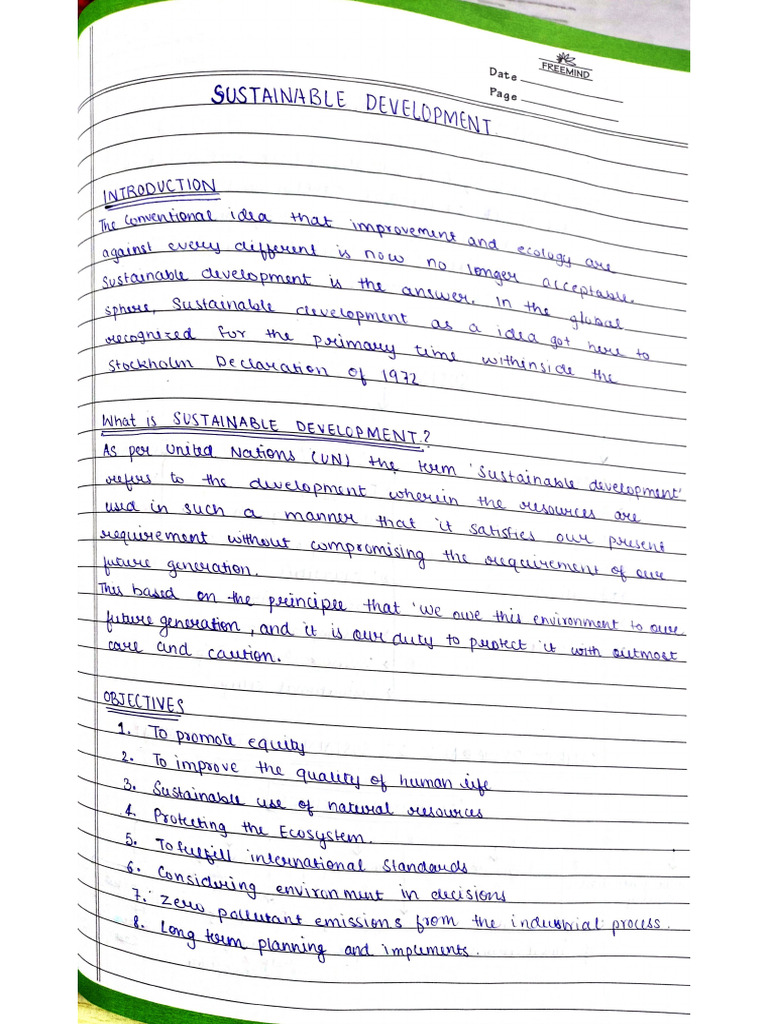 FREEMIND
Date
Page
SUSTAINABLE DEVELOPMENT
INTRODUCTION
The conventional idea that improvement and ecology are
against every different is now no longer acceptable.
Sustainable development is the answer. In the global
sphere, Sustainable development as a idea got here to
recognized for the primary time withinside the
Stockholm Declaration of 1972
What is SUSTAINABLE DEVELOPMENT?
As per United Nations (UN) the term 'sustainable development'
refers to the development wherein the resources are
used in such a manner that it satisfies our present
requirement without compromising the requirement of our
future generation.
This based on the principle that 'we owe this environment to our
future generation, and it is our duty to protect it with outmost
care and caution.
OBJECTIVES
1. To promote equity
2. To improve the quality of human life
3. Sustainable use of natural resources
4. Protecting the Ecosystem.
5. To fulfill international standards
6. Considering environment in decisions
7. Zero pollutant emissions from the industrial process.
8. Long term planning and implements.